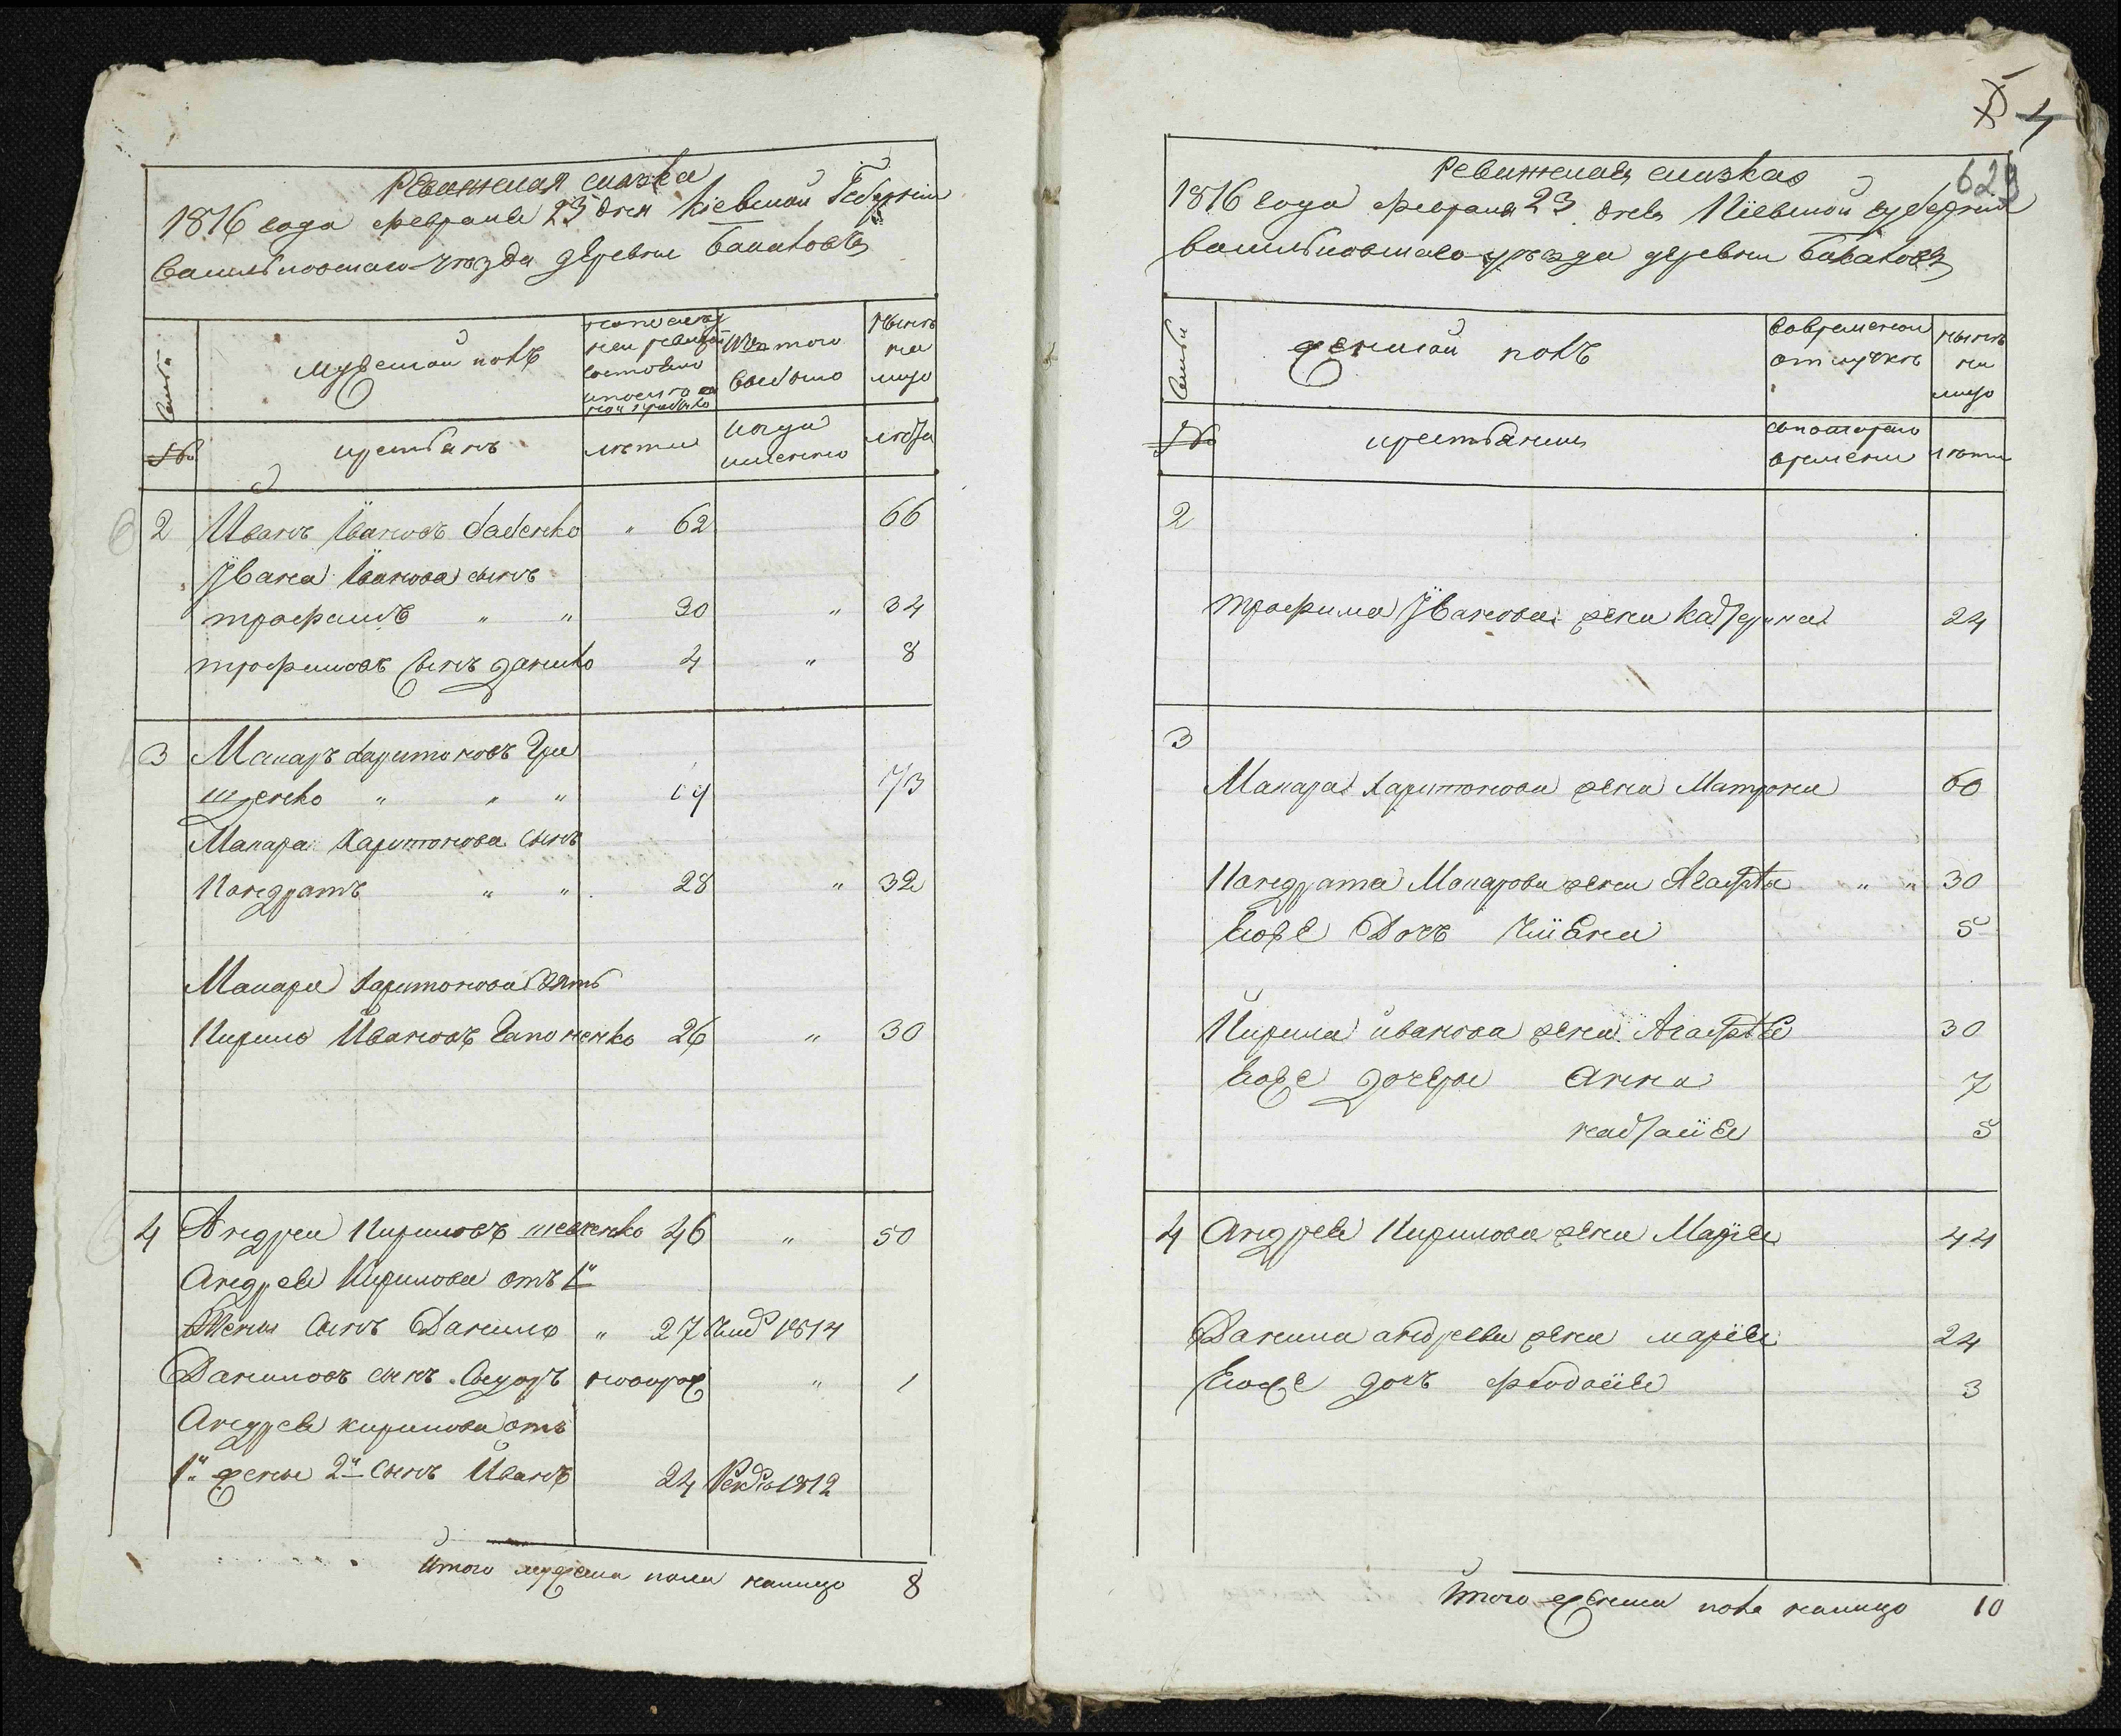 Ревижская сказка
1816 года февраля 23 дня Кіевской Губерніи
Васильковскаго уѣзда деревни Балаковъ
Семьи
мужеской полъ
по последней ревизіи состояло
Изъ того выбыло
Нынѣ на лицо
№
крестьянъ
лѣта
когда именно
лѣта
2 Иванъ Ивановъ " 62 66
Ивана Иванова сынъ
трофимъ " " 30 " 34
трофимовъ Сынъ данило 4 " 8
3 Макаръ харитоновъ Гри
щенко " " " 69 73
Макара Харитонова Сынъ
Кондратъ " " 28 " 32
Макара харитонова Зять
Кирило Ивановъ Гапоненко 26 " 30
4 Андрей Кириловъ шевченко 46 " 50
Андрея Кирилова отъ 1й
Жены Сынъ Данило " 27 1814
Даниловъ сынъ Сидоръ новорож " 1
Андрея кирилова отъ
1й жены 2й Сынъ Иванъ 24 1812
Итого мужеска пола налицо 8
4
629
Ревижская сказка
1816 года февраля 23 дня Кіевской губерніи
Васильковскаго уѣзда деревни Балаковъ
Семьи
женской полъ
Вовременной отлучкѣ
Нынѣ на лицо
№
крестьянки
скотораго времени
лѣта
2
трофима Иванова жена Катерина 24
3
Макара Харитонова жена Матрона 60
Кондрата Макарова жена Агафія " " 30
Еюже Дочъ Уліяна 5
Кирила иванова жена Агафія 30
Еюже дочери Анна 7
наталія 5
4 Андрея Кирилова жена Марія 44
Данила андреева жена марія 24
Еюже дочъ феодосія 3
Итого женска пола налицо 10